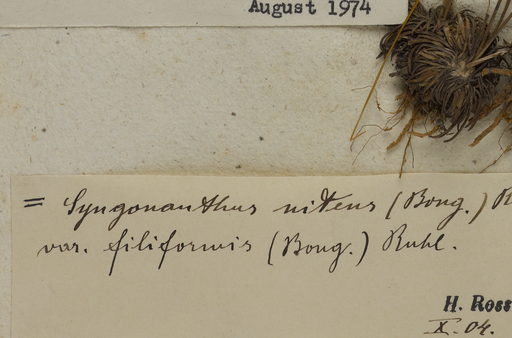 August 1974
= Syngonanthus nitens (Bong.) R
var. filiformis (Bong.) Ruhl.
H. Ross
X. 04.